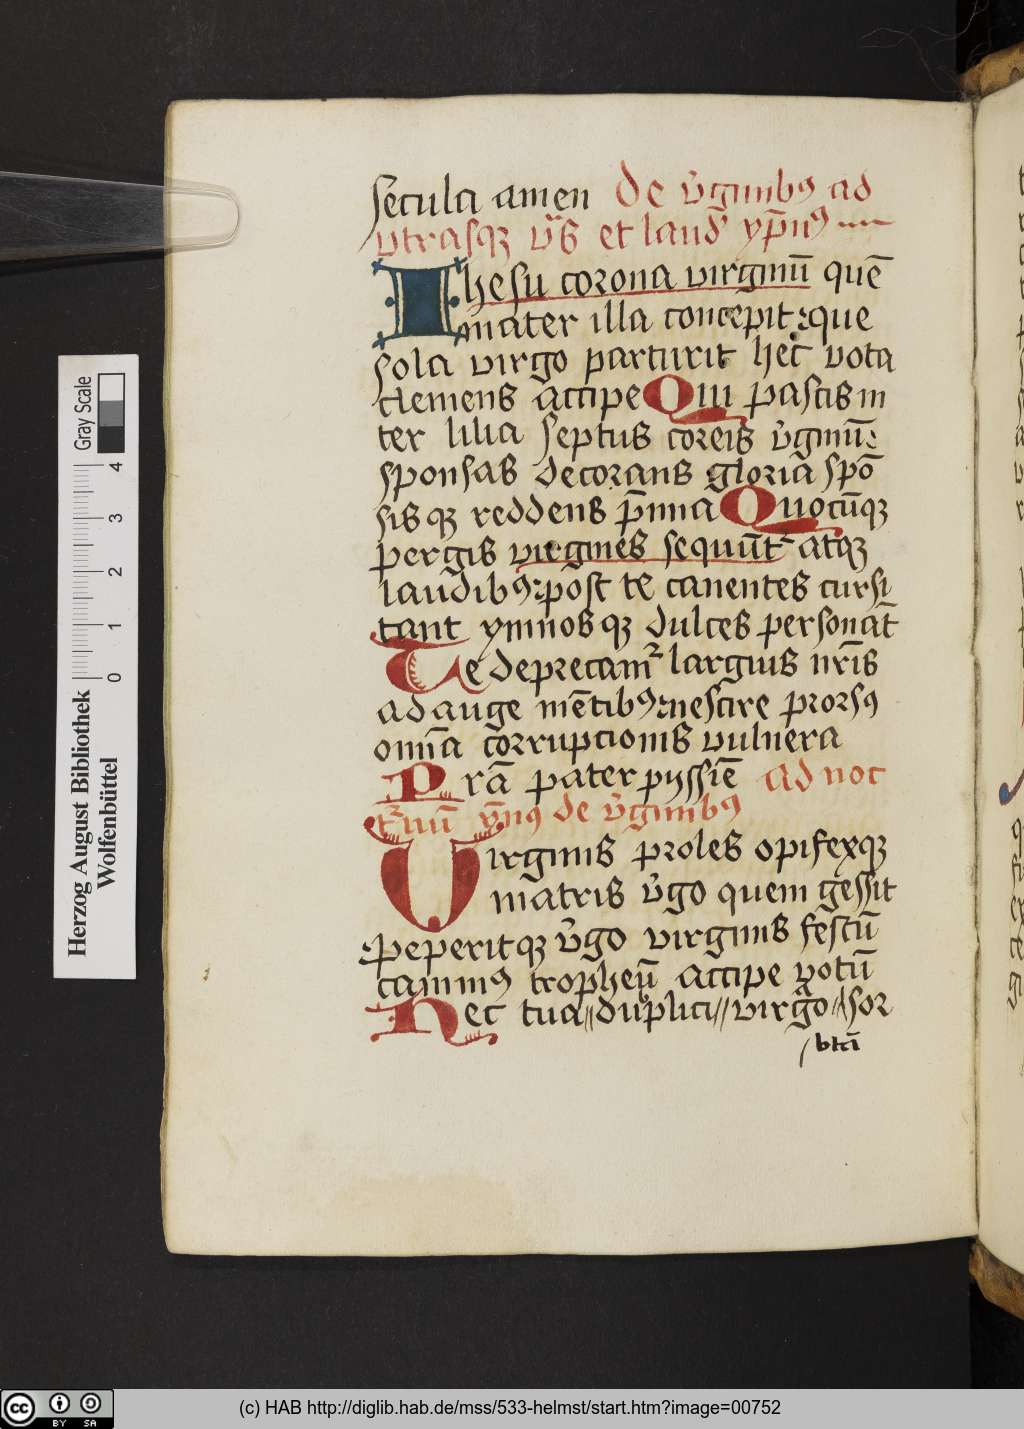 secula amen De v̄ginibꝯ ad
vtrasqꝫ vs̄ et laud̄ yp̄nꝯ
Ihesu corona virginū quē
mater illa concepit: que
sola virgo parturit hec̄ vota
clemens accipe Qui pascis in
ter lilia septus coreis v̄ginū:
sponsas decorans gloria spō
sis qꝫ reddens p̄mia Quocūqꝫ
pergis virgines sequūt᷑ atqꝫ
laudibꝯ: post te canentes cursi
tant ymnos qꝫ dulces personāt
Te deprecam᷑ largius nr̄is
ad auge mētibꝯ: nescire prorsꝯ
omīa corruptionis vulnera
Prā pater pyssiē ad noc
t᷑nū ȳnꝯ de v̄ginibꝯ
Virginis proles opifexqꝫ
matris v̄go quem gessit
peperitqꝫ v̄go virginis festū
canimꝯ tropheū accipe votū
Hec tua // duplici // virgo // sor
btā
Herzog August Bibliothek
Wolfenbüttel
Gray Scale
0 1 2 3 4
cc BY SA
(c) HAB http://diglib.hab.de/mss/533-helmst/start.htm?image=00752